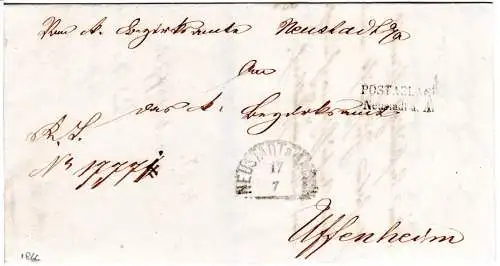 Vom k. Bezirksamte Neustadt a/A
An
das k. Bezirksamt
POSTABLAGE
Neustadt a. A.
R. S.
No 1777
NEUSTADT a.
17
7
Uffenheim
1866